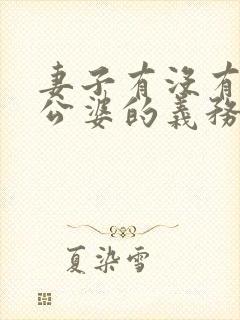 妻子有沒有
公婆的義務
夏染雪